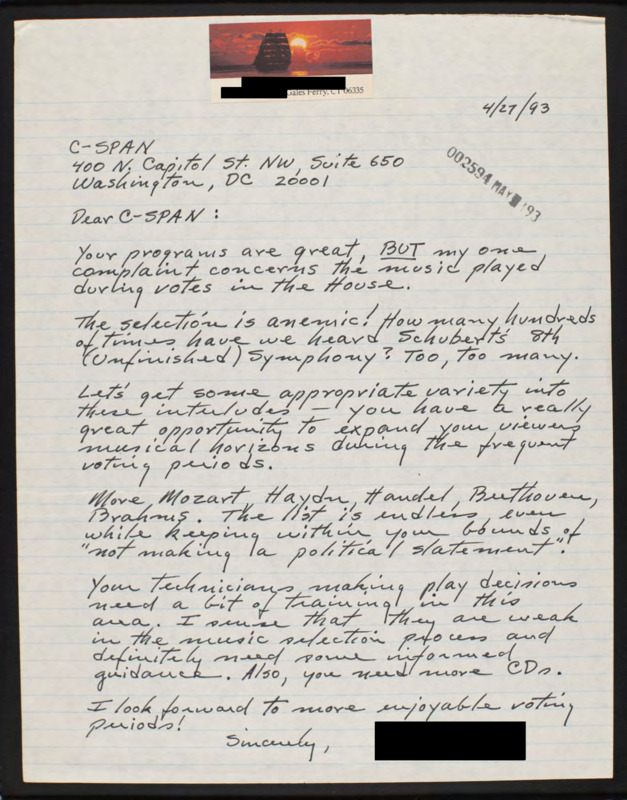 Gales Ferry, CT 06335
4/27/93
C-SPAN
400 N. Capitol St. NW, Suite 650
Washington, DC 20001
002594 MAY '93
Dear C-SPAN:
Your programs are great, BUT my one
complaint concerns the music played
during votes in the House.
The selection is anemic! How many hundreds
of times have we heard Schubert's 8th
(Unfinished) Symphony? Too, too many.
Let's get some appropriate variety into
these interludes — you have a really
great opportunity to expand your viewers
musical horizons during the frequent
voting periods.
More Mozart, Haydn, Handel, Beethoven,
Brahms. The list is endless even
while keeping within your bounds of
"not making a political statement".
Your technicians making play decisions
need a bit of training in this
area. I sense that they are weak
in the music selection process and
definitely need some informed
guidance. Also, you need more CDs.
I look forward to more enjoyable voting
periods!
Sincerely,